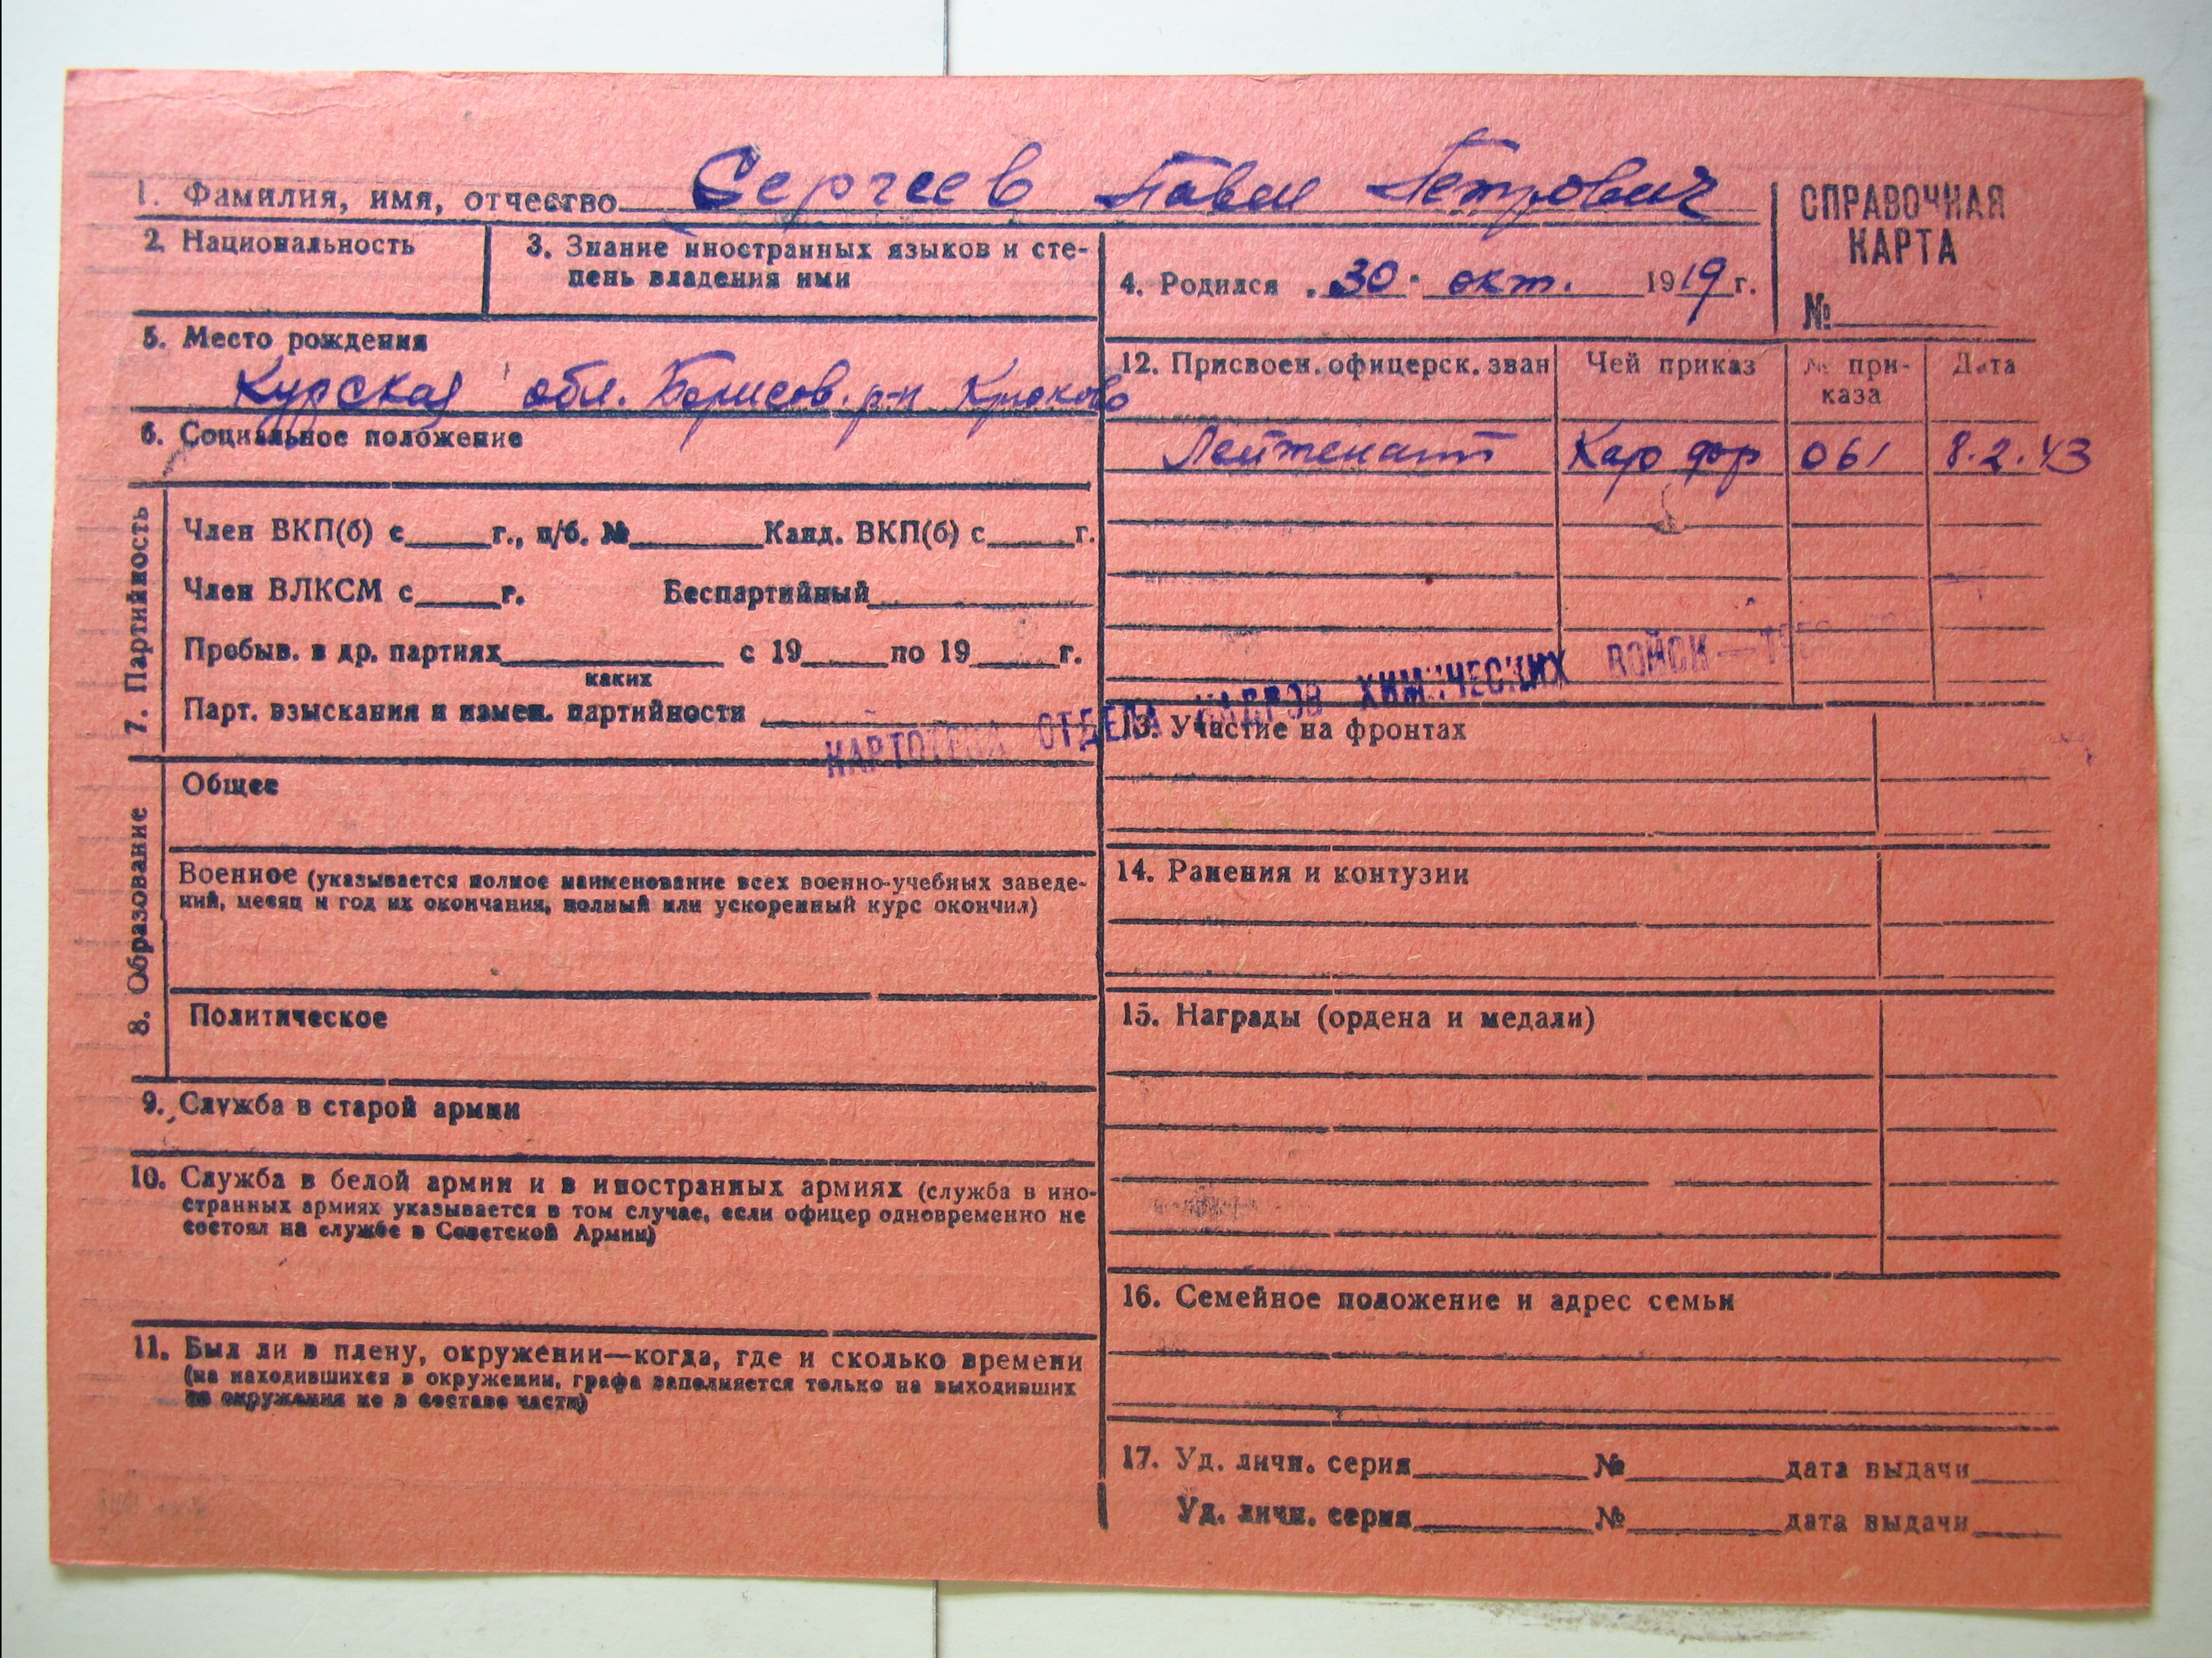 1. Фамилия, имя, отчество Сергеев Павел Петрович
СПРАВОЧНАЯ
КАРТА
№
2. Национальность
3. Знание иностранных языков и сте-
пень владения ими
4. Родился 30 окт. 1919 г.
5. Место рождения
Курская обл. Борисов. р-н Крюково
6. Социальное положение
7. Партийность
Член ВКП(б) с г., п/б. № Канд. ВКП(б) с г.
Член ВЛКСМ с г. Беспартийный
Пребыв. в др. партиях с 19 по 19 г.
каких
Парт. взыскания и измен. партийности
8. Образование
Общее
Военное (указывается полное наименование всех военно-учебных заведе-
ний, месяц и год их окончания, полный или ускоренный курс окончил)
Политическое
9. Служба в старой армии
10. Служба в белой армии и в иностранных армиях (служба в ино-
странных армиях указывается в том случае, если офицер одновременно не
состоял на службе в Советской Армии)
11. Был ли в плену, окружении—когда, где и сколько времени
(на находившихся в окружении, графа заполняется только на выходивших
из окружения не в составе части)
12. Присвоен. офицерск. зван Чей приказ № при-
каза Дата
Лейтенант Кар фр 061 8.2.43
КАРТОТЕКА ОТДЕЛА КАДРОВ ХИМИЧЕСКИХ ВОЙСК —
13. Участие на фронтах
14. Ранения и контузии
15. Награды (ордена и медали)
16. Семейное положение и адрес семьи
17. Уд. личн. серия № дата выдачи
Уд. личн. серия № дата выдачи